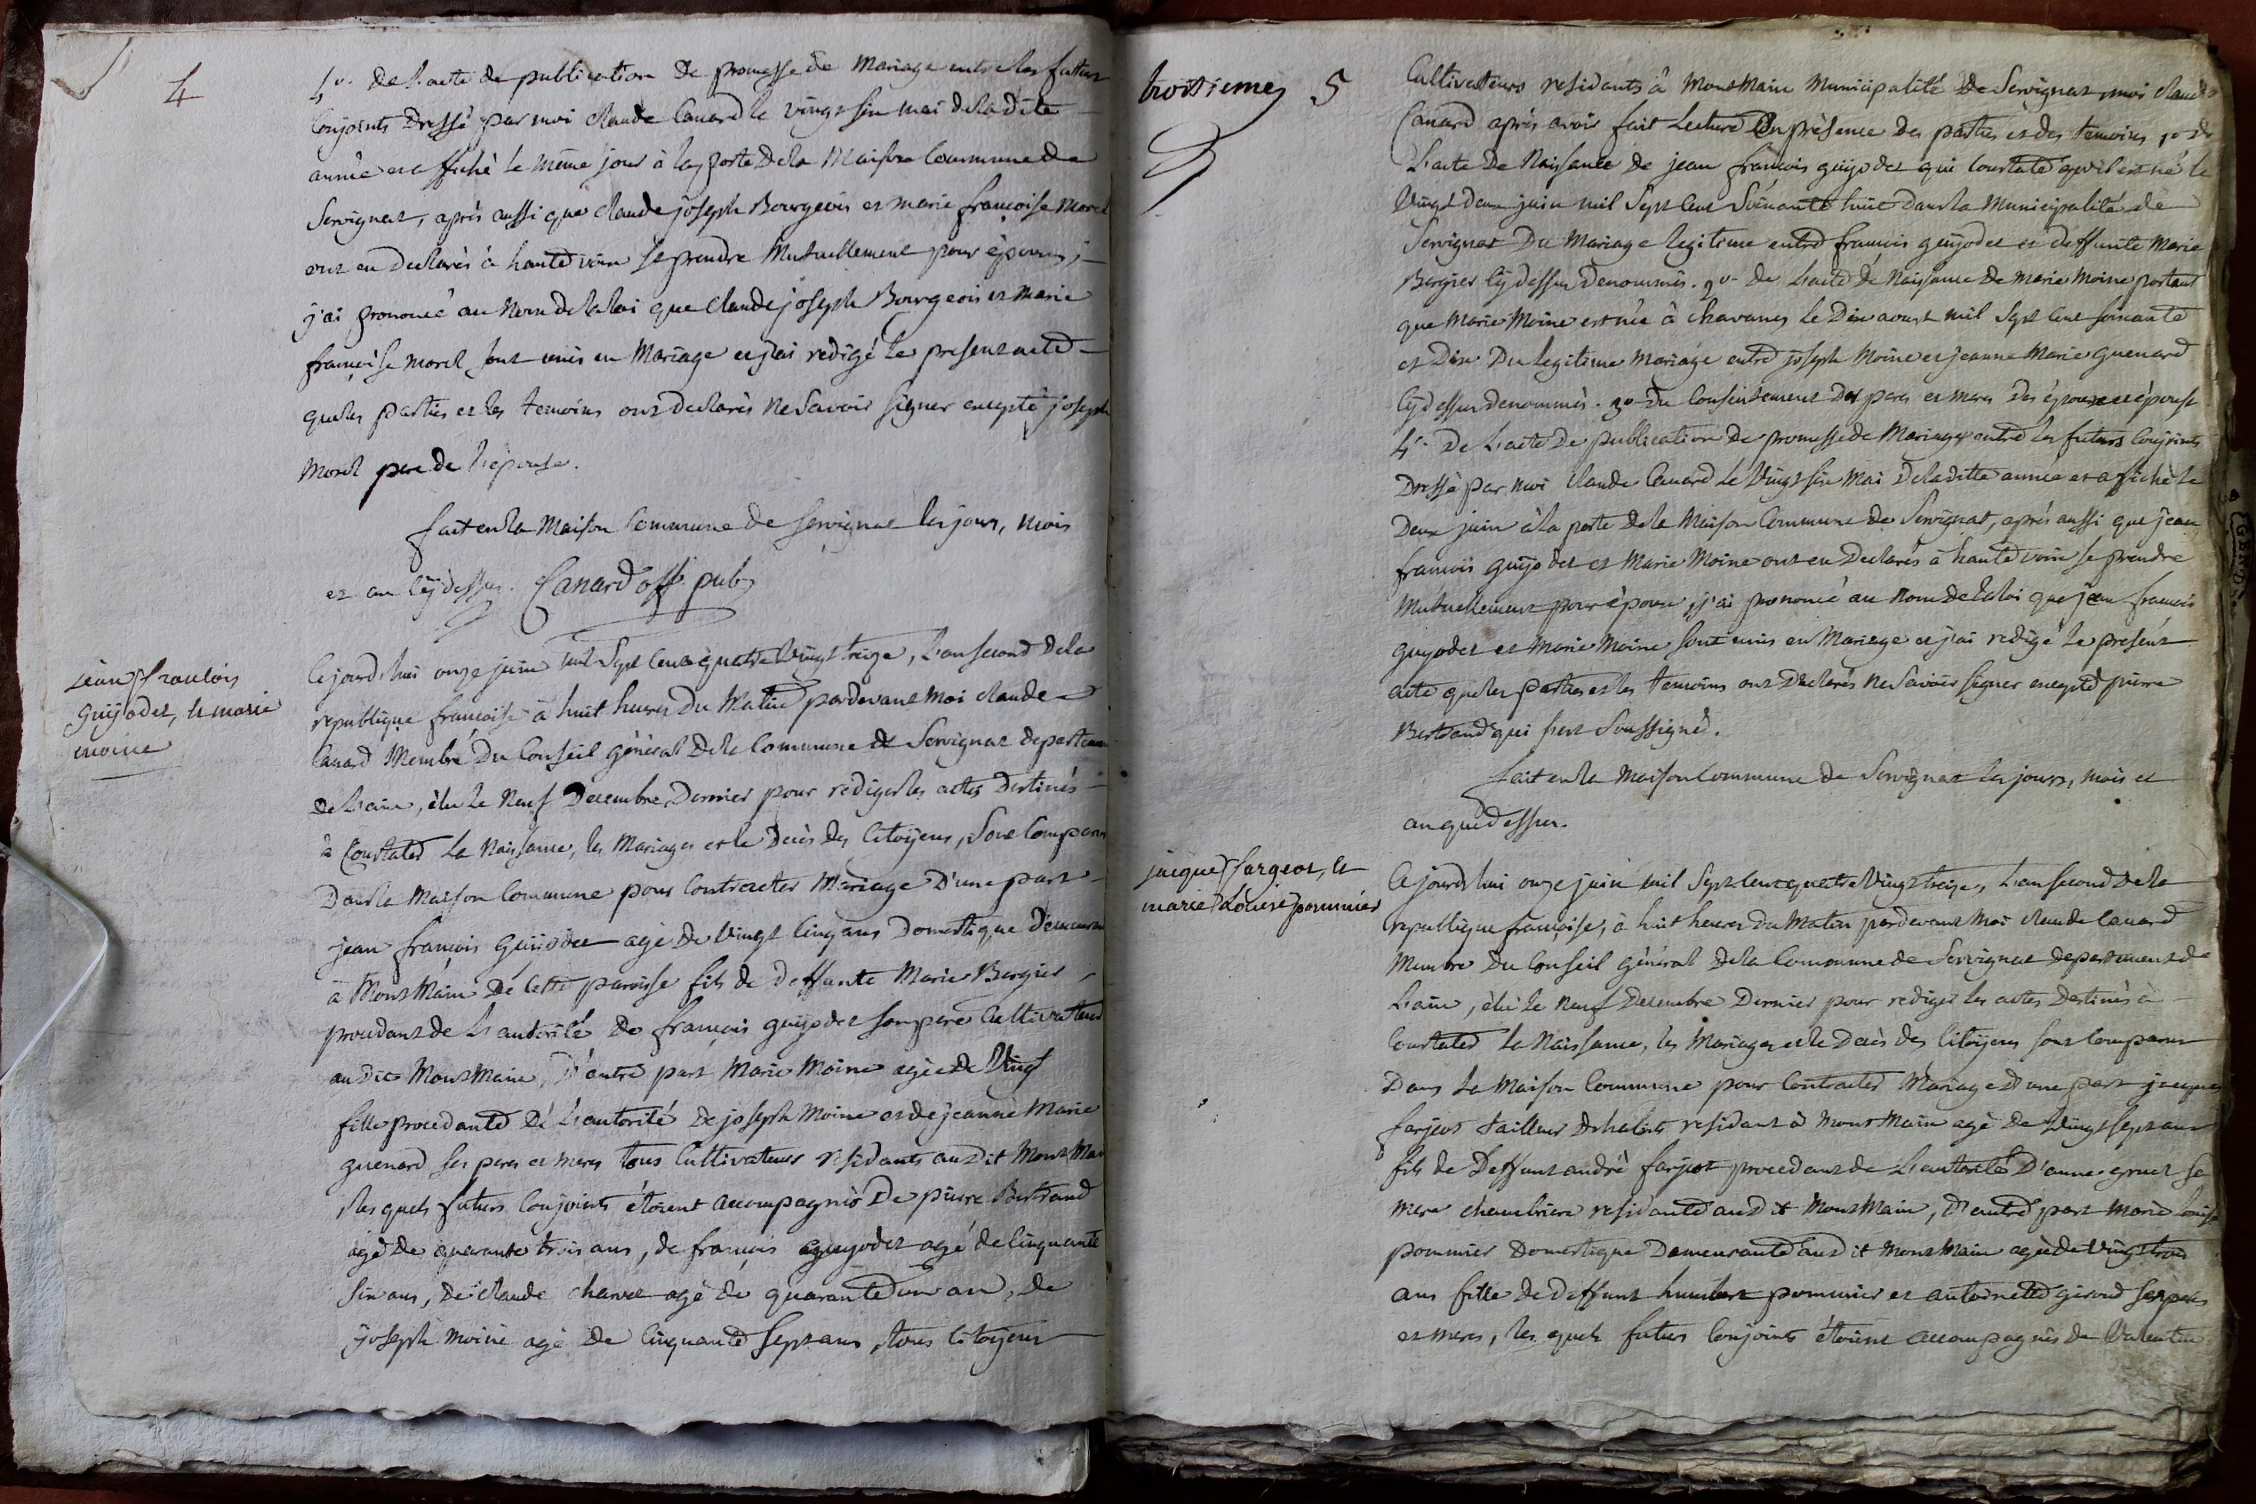 4
4º. De L'acte de publication De promesse de Mariage entre les futurs
Conjoints Dressé par moi claude Canard le vingt six mai de la dite
année et affiché le même jour à la porte de la Maison Commune de
Servignat, après aussi que claude joseph Bourgeois et marie françoise Morel
ont eu declarés à haute voix se prendre Mutuellement pour époux,
j'ai prononcé au Nom de la loi que Claude joseph Bourgeois et marie
françoise morel sont unis en Mariage et j'ai redigé le present acte
que les parties et les temoins ont declarés ne Savoir signer excepté joseph
Morel pere de l'épouse.
fait en la Maison Commune de servignat les jour, mois
et an cÿ dessus. Canard off. pub.
jean francois
Guÿodet, et marie
moine
Cejourd'hui onze juin mil Sept Cent quatre Vingt treize, L'an second de la
republique françoise à huit heures Du Matin pardevant Moi claude
Canard Membre Du Conseil général De la Commune de Servignat departem
de L'ain, élu le Neuf Decembre Dernier pour rediger les actes Destinés
à Constater La Naissance, les Mariages et le Decès des Citoÿens, Sont Comparus
Dans la Maison Commune pour Contracter Mariage D'une part
jean françois Guÿodet agé De Vingt Cinq ans Domestique Demeurant
à Mont Main De Cette paroisse fils de Deffunte Marie Bergier,
procedant de L'autorité De françois guÿodet son pere Cultivateur
au dit Mont Main, D'autre part Marie Moine agée De Vingt
fille procedante De L'autorité De joseph Moine et de jeanne Marie
guenard ses peres et meres tous Cultivateurs residants au dit Mont Main
les quels futurs Conjoints étoient accompagnés De pierre Bertrand
agé De quarante trois ans, de françois guyodet agé de Cinquante
six ans, de claude charvet agé de quarante un an, de
joseph moine agé De Cinquante Sept ans, tous Citoÿens
troisieme 5
Cultivateurs residants à Mont Main Municipalité De Servignat, moi claude
Canard après avoir fait Lecture En présence Des parties et des temoins 1º de
L'acte De Naissance de jean françois guÿodet qui Constate qu'il est né le
Vingt Deux juin mil Sept Cent Soixante huit dans la Municipalité de
Servignat Du Mariage legitime entre françois guÿodet et deffunte Marie
Bergier Cÿ dessus Denommés. 2º. de L'acte de Naissance de Marie Moine portant
que Marie Moine est née à chavanes Le Dix aoust mil Sept Cent soixante
et Dix Du legitime Mariage entre joseph Moine et jeanne Marie Guenard
Cÿ dessus Denommés. 3º Du Consentement Des peres et meres Des époux et épouse
4º. De L'acte De publication De promesse de Mariage entre les futurs Conjoints
Dressé par moi Claude Canard Le Vingt six Mai De la ditte année et affiché le
Deux juin à la porte De la Maison Commune De Servignat, après aussi que jean
françois guÿodet et Marie Moine ont eu Declarés à haute voix se prendre
Mutuellement pour époux, j'ai prononcé au Nom de la loi que jean françois
guyodet et Marie Moine sont unis en Mariage et j'ai redigé le present
acte que les parties et les temoins ont Declarés Ne Savoir signer excepté pierre
Bertrand qui s'est Soussigné.
fait en la Maison Commune de Servignat les jours, mois et
an que dessus.
jacque fargeot, et
marie Louise pommier
Cejourd'hui onze juin mil Sept Cent quatre Vingt treize, L'an Second De la
republique françoise, à huit heures du Matin pardevant Moi claude Canard
Membre Du Conseil général De la Commune de Servignat departement de
L'ain, élu le Neuf Decembre Dernier pour rediger les actes Destinés à
Constater La Naissance, les Mariages et le Decès des Citoÿens sont Comparus
Dans La Maison Commune pour Contracter Mariage D'une part jacques
farjeot tailleur D'habits residant à Mont Main agé De Vingt sept ans
fils de Deffunt andré farjeot procedant de L'autorité D'anne gruet sa
mere chambriere residante au dit Mont Main, D'autre part Marie Louise
pommier Domestique Demeurante au dit Mont Main agée de Vingt trois
ans fille de Deffunt humbert pommier et antoinette giroud ses peres
et meres, les quels futurs Conjoints étoient accompagnés De Valentin